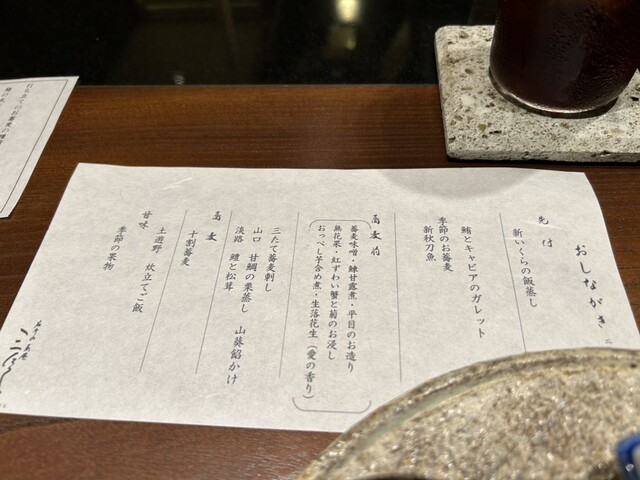 おしながき
先付
新いくらの飯蒸し
鮪とキャビアのガレット
季節のお蕎麦
新秋刀魚
蕎麦前
蕎麦味噌・鰊甘露煮・平目のお造り
無花果・紅ずわい蟹と菊のお浸し
おっぺし芋含め煮・生落花生（愛の香り）
三たて蕎麦刺し
山口　甘鯛の栗蒸し　山葵餡かけ
淡路　鱧と松茸
蕎麦
十割蕎麦
土遊野　炊立てご飯
甘味
季節の果物